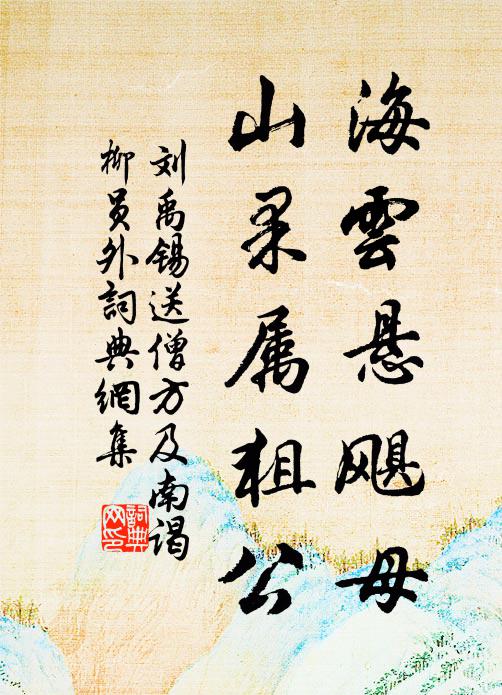 海雲悬飓母
山果属狙公
刘禹锡送僧方及南谒
柳员外詞典網集
詞典网印